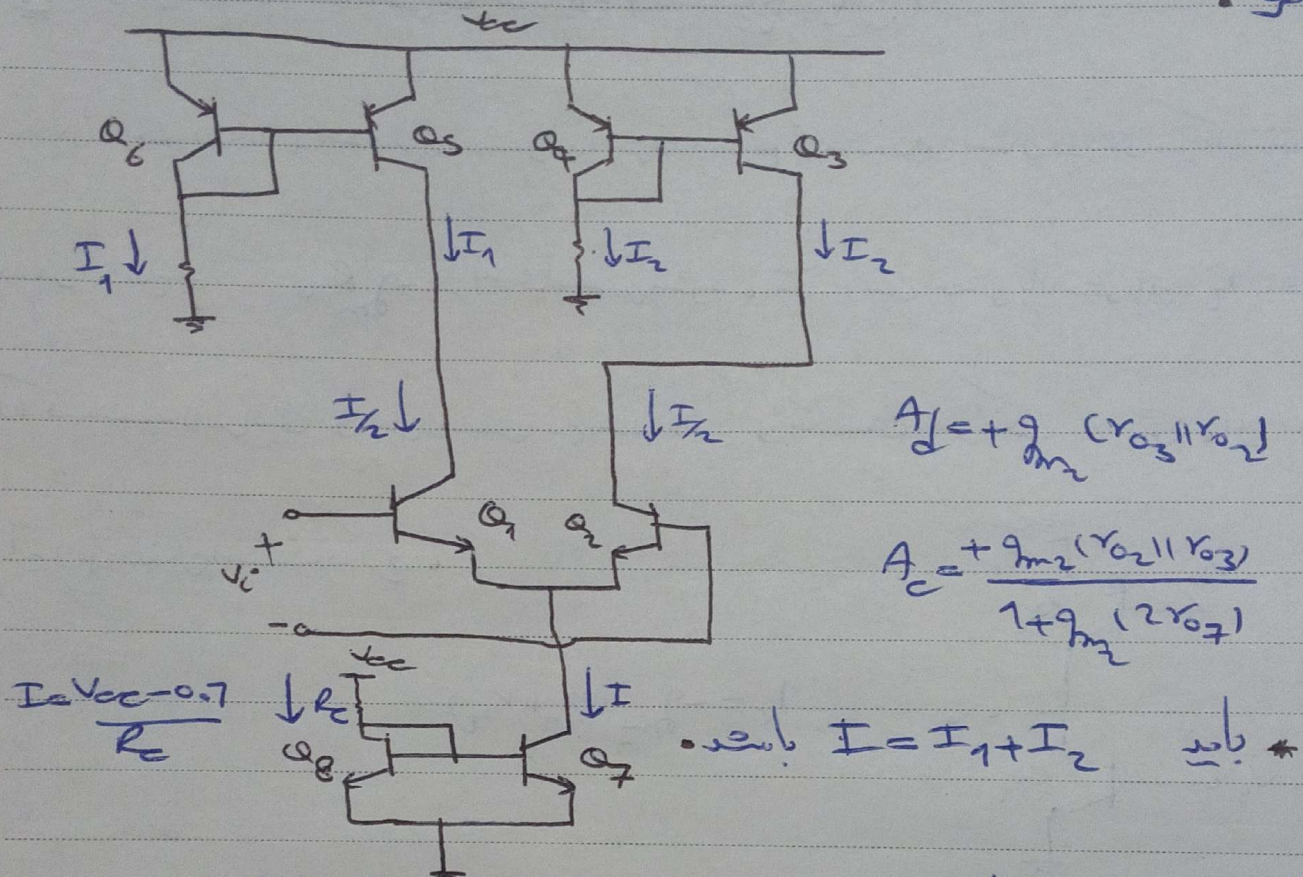 Vcc
Q6
Q5
Q4
Q3
I1 ↓
↓ I1
↓ I2
↓ I2
I/2 ↓
↓ I/2
Ad = + gm2 (ro3 || ro2)
+
Vi
-
Q1
Q2
Ac = + gm2 (ro2 || ro3) / 1 + gm2 (2ro7)
Vcc
I = Vcc - 0.7 / Rc
↓ Rc
↓ I
Q8
Q7
* باید I = I1 + I2 باشد.